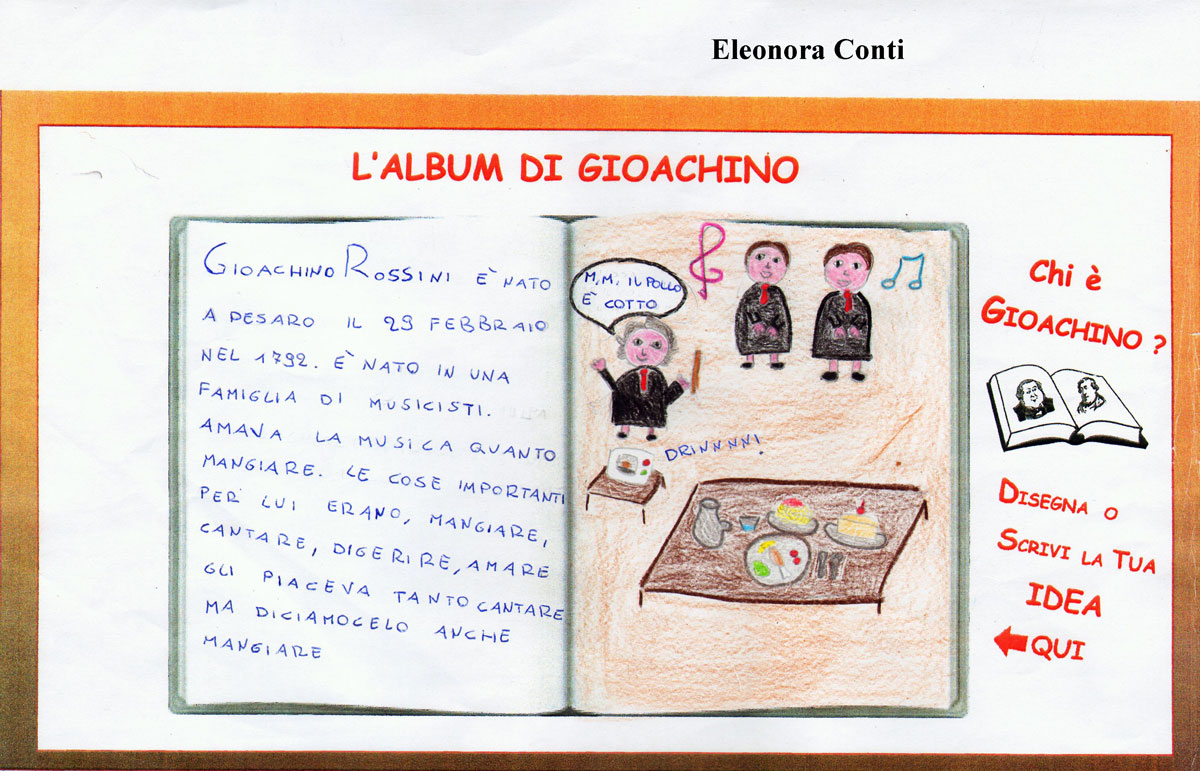 Eleonora Conti
L'ALBUM DI GIOACHINO
GIOACHINO ROSSINI E` NATO
A PESARO IL 29 FEBBRAIO
NEL 1792. E` NATO IN UNA
FAMIGLIA DI MUSICISTI.
AMAVA LA MUSICA QUANTO
MANGIARE. LE COSE IMPORTANTI
PER LUI ERANO, MANGIARE,
CANTARE, DIGERIRE, AMARE
GLI PIACEVA TANTO CANTARE
MA DICIAMOCELO ANCHE
MANGIARE
M,M, IL POLLO
È COTTO
DRINNNN!
Chi è
GIOACHINO ?
DISEGNA O
SCRIVI LA TUA
IDEA
QUI